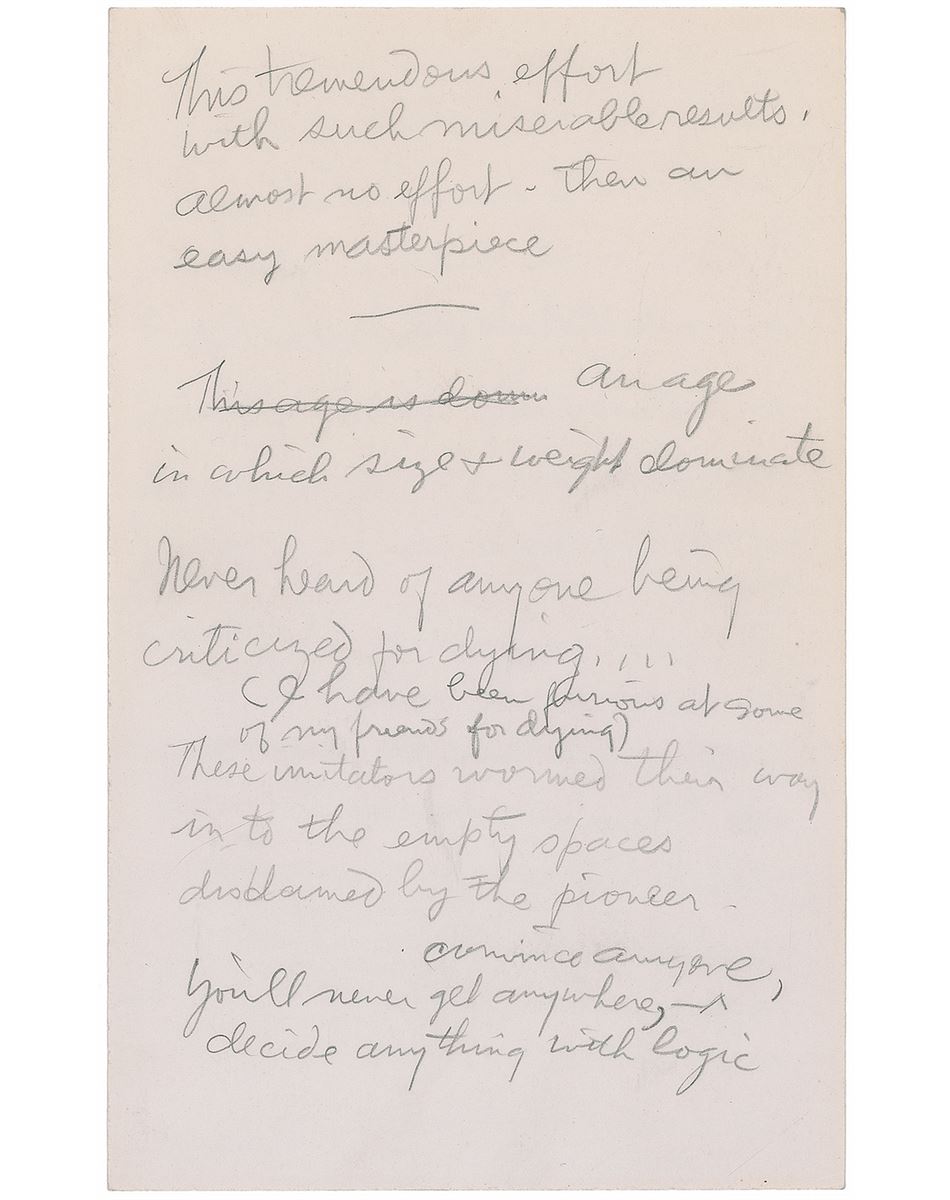 This tremendous effort
with such miserable results.
almost no effort - then an
easy masterpiece
This age is dom an age
in which size & weight dominate
Never heard of anyone being
criticized for dying.....
(I have been furious at some
of my friends for dying)
These imitators wormed their way
into the empty spaces
disdained by the pioneer -
convince anyone,
You'll never get anywhere, —^
decide anything with logic